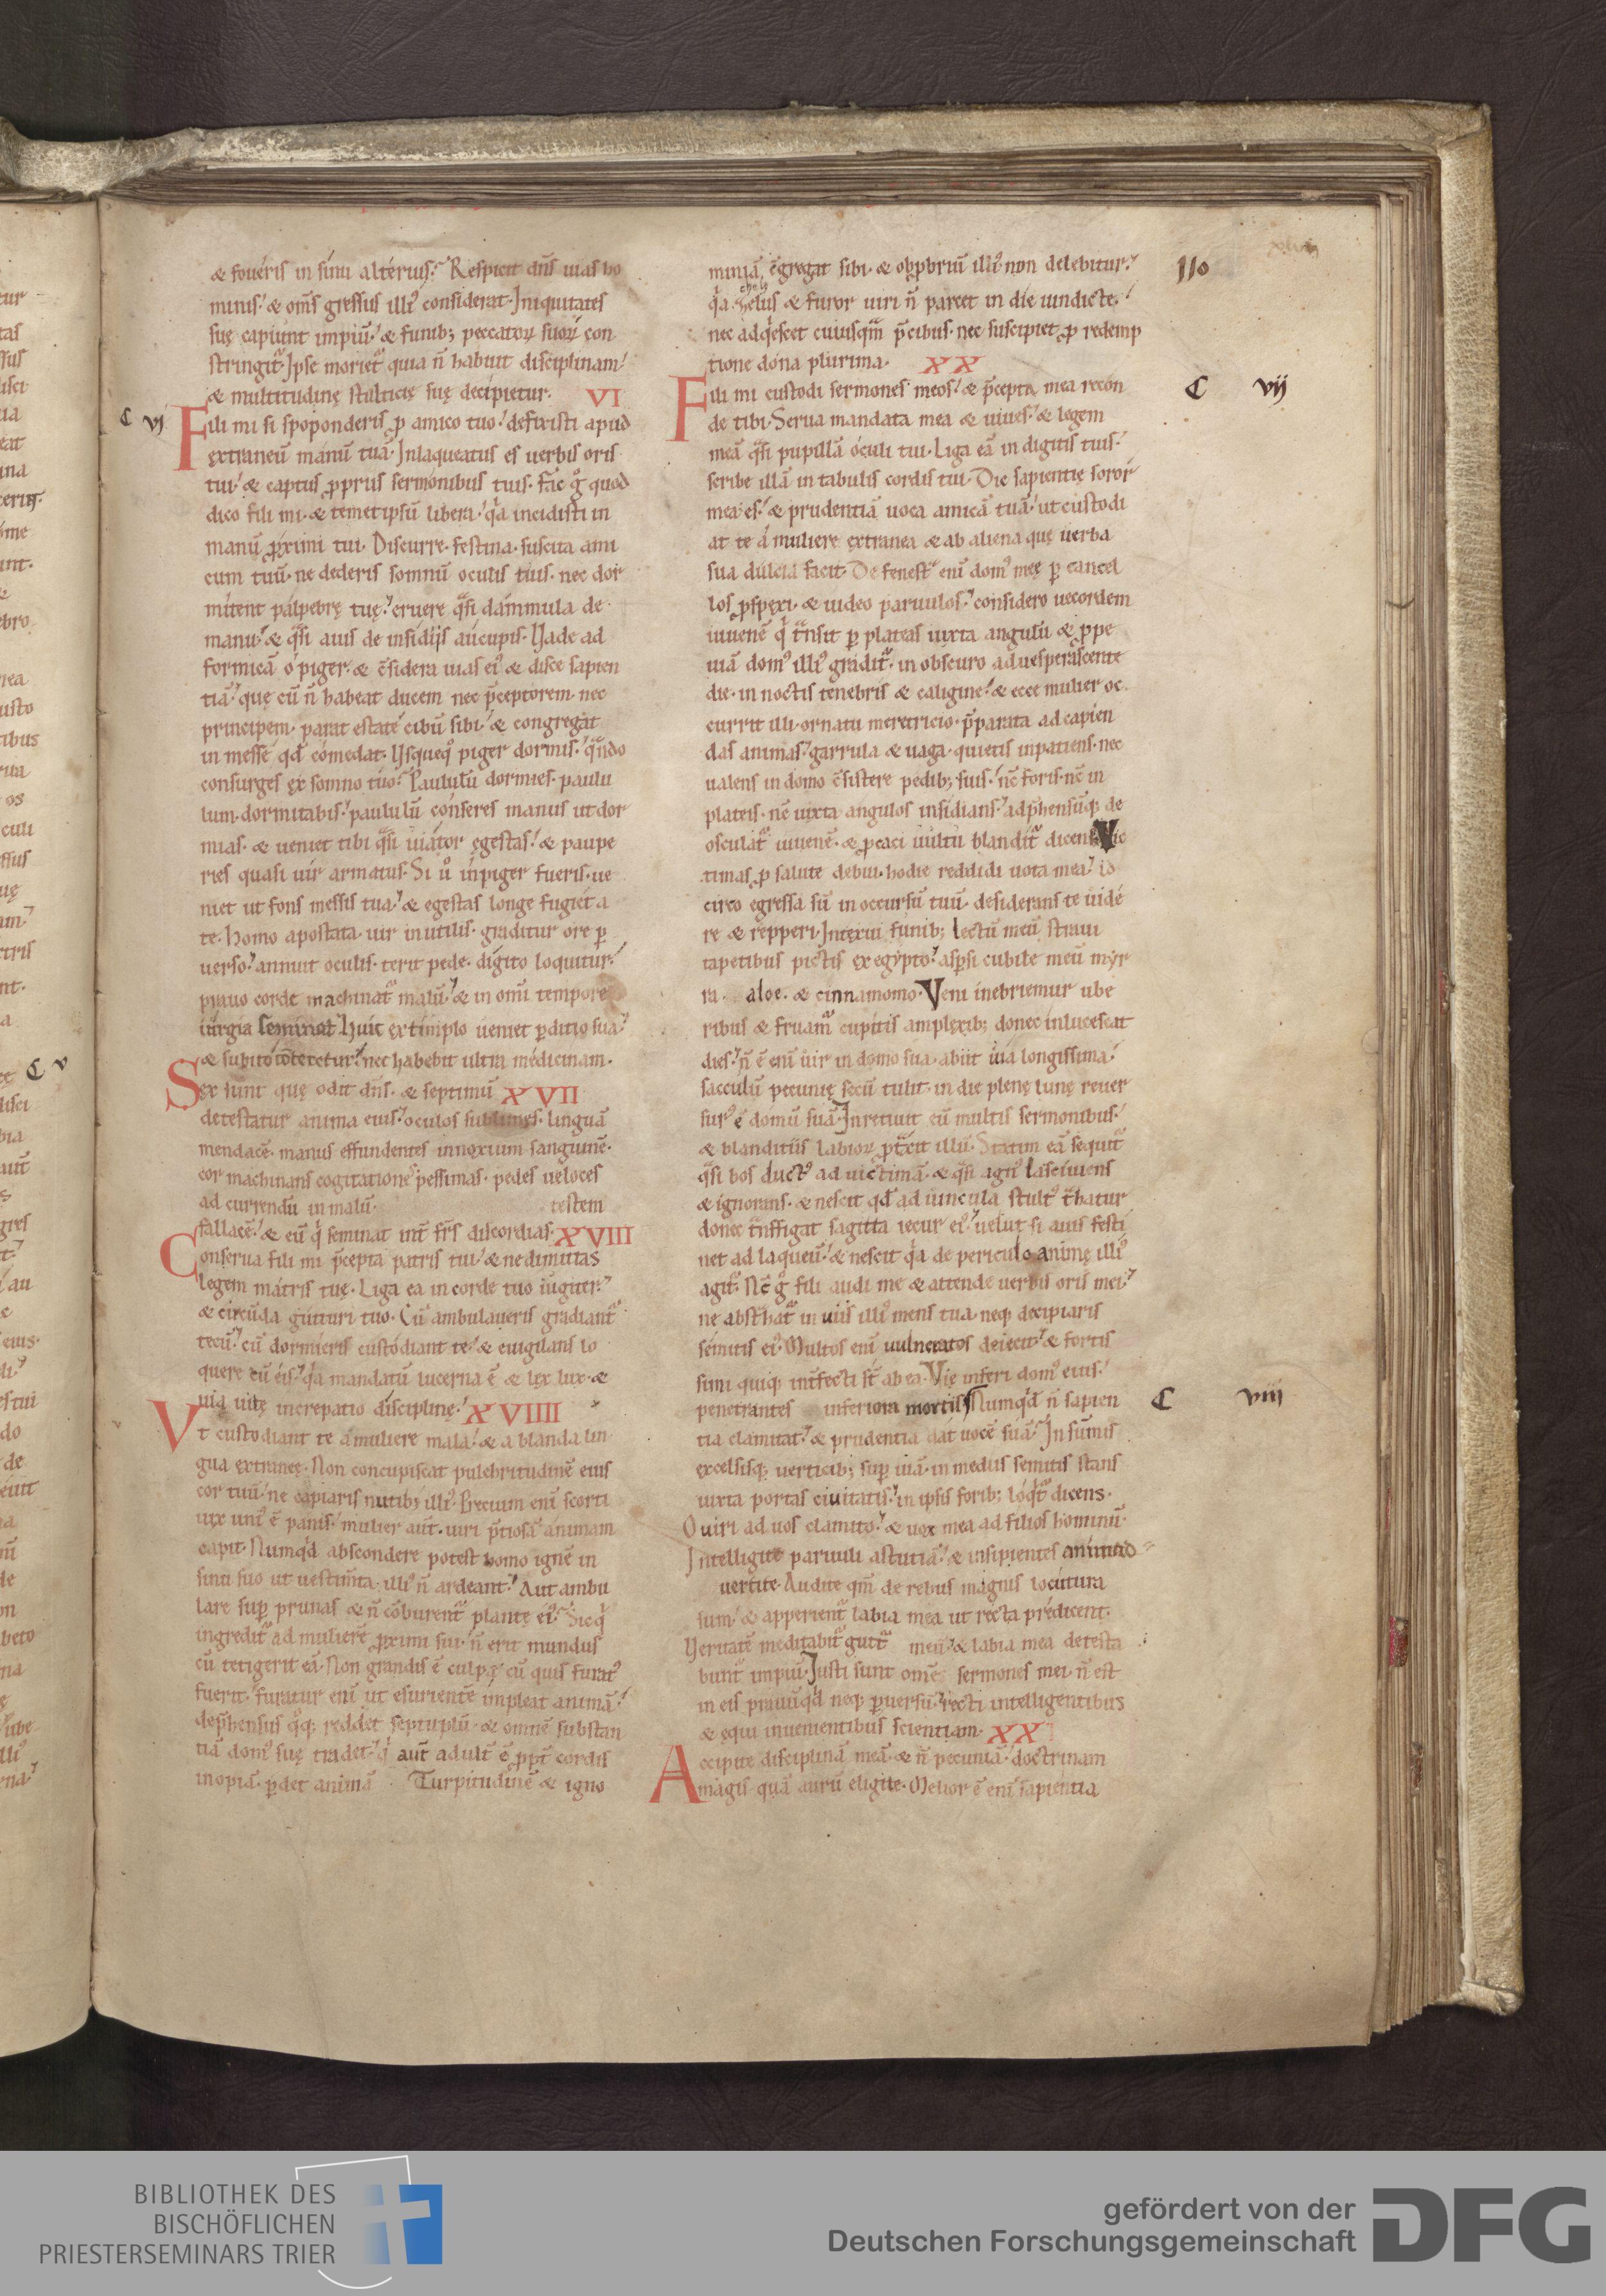 & foueris in sinu alterius. Respicit dn̄s uias ho
minis. & om̄s gressus illi᷒ considerat. Iniquitates
suę capiunt impiū. & funib; peccatoꝝ suoꝝ con
stringit̃. Ipse moriet̃ quia n̄ habuit disciplinam.
& multitudinę stulticię suę decipietur. VI
C vj
Fili mi si spoponderis ꝓ amico tuo. defixisti apud
extraneū manū tuā. Inlaqueatus es uerbis oris
tui. & captus ꝓpriis sermonibus tuis. fac g̊ quod
dico fili mi. & temetipsū libera. q̇a incidisti in
manū ꝓximi tui. Discurre. festina. suscita ami
cum tuū. ne dederis somnū oculis tuis. nec dor
mitent palpebrę tuę. eruere q̃si dammula de
manu. & q̃si auis de insidiis aucupis. Uade ad
formicā o piger. & c̄sidera uias ei᷒ & disce sapien
tiā. quę cū n̄ habeat ducem nec p̄ceptorem nec
principem. parat estate cibū sibi. & congregat
in messe qđ comedat. Usqueq̊ piger dormis. q̃ndo
consurges ex somno tuo. Paululū dormies. paulu
lum dormitabis. paululū conseres manus ut dor
mias. & ueniet tibi q̃si uiator egestas. & paupe
ries quasi uir armatus. Si ů inpiger fueris. ue
niet ut fons messis tua. & egestas longe fugiet a
te. Homo apostata uir inutilis. graditur ore ꝑ
uerso. annuit oculis. terit pede. digito loquitur.
prauo corde machinat̃ malū. & in om̄i tempore
iurgia seminat Huic extimplo ueniet ꝑditio sua.
& subito conteretur. nec habebit ultra medicinam.
C v
Sex sunt quę odit dn̄s. & septimū XVII
detestatur anima eius. oculos sublimes. linguā
mendacē. manus effundentes innoxium sanguinē.
cor machinans cogitationes pessimas. pedes ueloces
ad currendū in malū. testem
fallacē. & eū q̇ seminat int̄ fr̄s discordias. XVIII
Conserua fili mi p̄cepta patris tui. & ne dimittas
legem matris tuę. Liga ea in corde tuo iugiter.
& circūda gutturi tuo. Cū ambulaueris gradiant̃
tecū. cū dormieris custodiant te. & euigilans lo
quere cū eis. q̇a mandatū lucerna ē & lex lux. &
uia uitę increpatio disciplinę. XVIIII
Vt custodiant te a muliere mala. & a blanda lin
gua extranę. Non concupiscat pulchritudinē eius
cor tuū. ne capiaris nutib; illi᷒. Precium enī scorti
uix uni᷒ ē panis. mulier aut̄. uiri p̄tiosā animam
capit. Numqđ abscondere potest homo ignē in
sinu suo ut uestim̄ta illi᷒ n̄ ardeant. Aut ambu
lare suꝑ prunas & n̄ cōburent̃ plantę ei᷒. Sic q̇
ingredit̃ ad mulierē ꝓximi sui. n̄ erit mundus
cū tetigerit eā. Non grandis ē culpa cū quis furat᷒
fuerit. furatur enī ut esurientē inpleat animā.
dep̄hensus q̊q; reddet septuplū. & omnē substan
tiā dom᷒ suę tradet. q̇ aut̄ adult̄ ē ꝓpt̄ cordis
inopiā. ꝑdet animā Turpitudinē & igno
miniā c̄gregat sibi. & obꝓbriū illi᷒ non delebitur.
110
q̇a zelus & furor uiri n̄ parcet in die uindictę.
nec adq̇escet cuiusq̃m p̄cibus. nec suscipiet ꝓ redemp
tione dona plurima. XX
C vij
Fili mi custodi sermones meos. & p̄cepta mea recon
de tibi. Serua mandata mea & uiues. & legem
meā q̃si pupillā oculi tui. Liga eā in digitis tuis.
scribe illā in tabulis cordis tui. Dic sapientię soror
mea es. & prudentiā uoca amicā tuā. ut custodi
at te a muliere extranea & ab aliena quę uerba
sua dulcia facit. De fenest̃ enī dom᷒ meę ꝑ cancel
los ꝓspexi. & uideo paruulos. considero uecordem
iuuenē q̇ t̃nsit ꝑ plateas iuxta angulū & ꝓpe
uiā dom᷒ illi᷒ gradit̃. in obscuro aduesperascente
die. in noctis tenebris & caligine. & ecce mulier oc
currit illi. ornatu meretricio. p̄parata ad capien
das animas. garrula & uaga. quietis inpatiens. nec
ualens in domo c̄sistere pedib; suis. nc̄ foris. nc̄ in
plateis. nc̄ iuxta angulos insidians. adp̄hensūq; de
osculat̃ iuuenē. & ꝓcaci uultu blandit̃ dicens. Vic
timas ꝓ salute debui. hodie reddidi uota mea. id
circo egressa sū in occursū tuū. desiderans te uide
re & repperi. Intexui funib; lectū meū straui
tapetibus pictis ex egypto. asꝑsi cubile meū myr
ra. aloe. & cinnamomo. Veni inebriemur ube
ribus & fruam̃ cupitis amplexib; donec inlucescat
dies. n̄ ē enī uir in domo sua. abiit uia longissima.
sacculū pecunię secū tulit. in die plenę lunę reuer
sur᷒ ē domū suā. Inretiuit eū multis sermonibus.
& blanditiis labioꝝ ꝓtraxit illū. Statim eā sequit̃
q̃si bos duct᷒ ad uictimā. & q̃si agn᷒ lasciuiens
& ignorans. & nescit qđ ad uincula stult᷒ t̃hatur
donec t̃nsfigat sagitta iecur ei᷒. uelut si auis festi
net ad laqueū. & nescit q̇a de periculo animę illi᷒
agit̃. Nc̄ g̊ fili audi me & attende uerbis oris mei.
ne abst̃hat̃ in uiis illi᷒ mens tua. neq; decipiaris
semitis ei᷒. Multos enī uulneratos deiecit. & fortis
simi quiq; int̄fecti st̄ ab ea. Vię inferi dom᷒ eius.
penetrantes inferiora mortis. Numqđ n̄ sapien
C viii
tia clamitat. & prudentia dat uocē suā. In sūmis
excelsisq; uerticib; suꝑ uiā. in mediis semitis stans
iuxta portas ciuitatis. in ipsis forib; loq̇t̃ dicens.
O uiri ad uos clamito. & uox mea ad filios hominū.
Intelligite paruuli astutiā. & insipientes animad
uertite. Audite qm̄ de rebus magnis locutura
sum. & apperient̃ labia mea ut recta predicent.
Ueritatē meditabit̃ gutt̃ meū. & labia mea detesta
bunt̃ impiū. Iusti sunt om̄es sermones mei. n̄ est
in eis prauū qđ neq; ꝑuersū. recti intelligentibus
& equi inuenientibus scientiam. XX
Accipite disciplinā meā. & n̄ pecuniā. doctrinam
magis quā aurū eligite. Melior ē enī sapientia
BIBLIOTHEK DES
BISCHÖFLICHEN
PRIESTERSEMINARS TRIER
gefördert von der
Deutschen Forschungsgemeinschaft
DFG